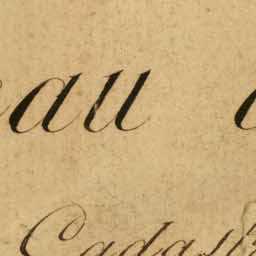 eau d
Cadas